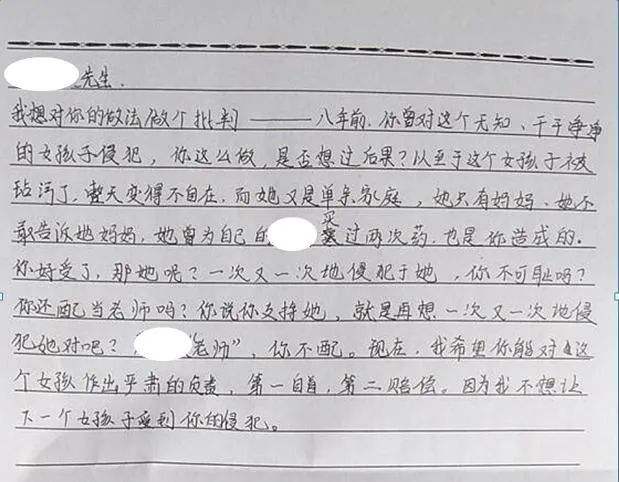 先生.
我想对你的做法做个批判——八年前.你曾对这个无知、干干净净
的女孩子侵犯，你这么做，是否想过后果？以至于这个女孩子被
玷污了，整天变得不自在.而她又是单亲家庭，她只有妈妈、她不
敢告诉她妈妈，她曾为自己的 买过两次药.也是你造成的.
你好受了，那她呢？一次又一次地侵犯于她，你不可耻吗？
你还配当老师吗？你说你支持她，就是再想一次又一次地侵
犯她对吧？ 老师”，你不配。现在，我希望你能对这
个女孩作出严肃的负责，第一自首，第二赔偿。因为我不想让
下一个女孩子受到你的侵犯。